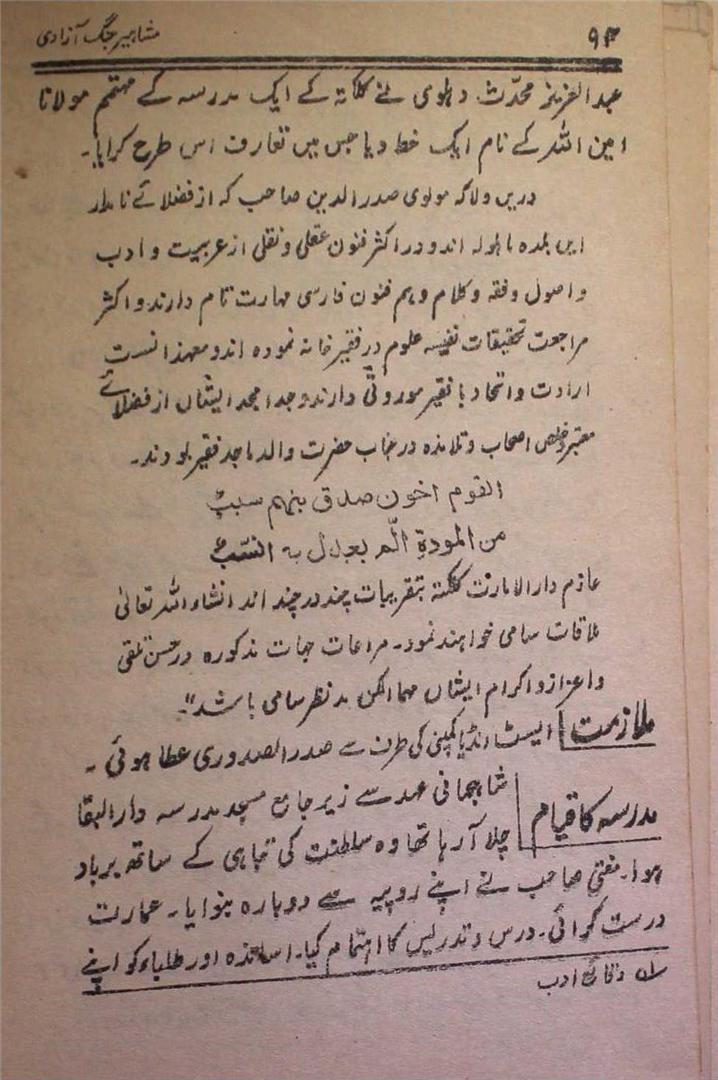 ۹۴
مشاہیر جنگ آزادی
عبدالعزیز محدّث دہلوی نے کلکتہ کے ایک مدرسہ کے مہتمم مولانا
امین اللہ کے نام ایک خط دیا جس میں تعارف اس طرح کرایا۔
دریں ولا کہ مولوی صدرالدین صاحب کہ از فضلائے نامدار
ایں بلدہ اند و در اکثر فنون عقلی و نقلی از عربیت و ادب
و اصول و فقہ و کلام و ہم فنون فارسی مہارت تام دارند و اکثر
مراجعت تحقیقات نفیسہ علوم در فقیر خانہ نمودہ اند و معہذا نسبت
ارادت و اتحاد با فقیر موروثی دارند و جد امجد ایشاں از فضلائے
معتبر و خلص اصحاب و تلامذہ در جناب حضرت والد ماجد فقیر بودند۔
القوم اخون صدق بنہم سبب
من المودۃ الّم یعدل بہ النسب
عازم دارالامارت کلکتہ بتقریبات چند در چند اند انشاء اللہ تعالیٰ
ملاقات سامی خواہند نمود۔ مراعات جہات مذکورہ در حسن تلقی
و اعزاز و اکرام ایشاں مہما امکن مد نظر سامی باشد"۔
ملازمت ایسٹ انڈیا کمپنی کی طرف سے صدر الصدوری عطا ہوئی ۔
مدرسہ کا قیام شاہجہانی عہد سے زیر جامع مسجد مدرسہ دار البقا
چلا آ رہا تھا وہ سلطنت کی تباہی کے ساتھ برباد
ہوا۔ مفتی صاحب نے اپنے روپیہ سے دوبارہ بنوایا۔ عمارت
درست کرائی۔ درس و تدریس کا اہتمام کیا۔ اساتذہ اور طلباء کو اپنے
لہ وقائع ادب